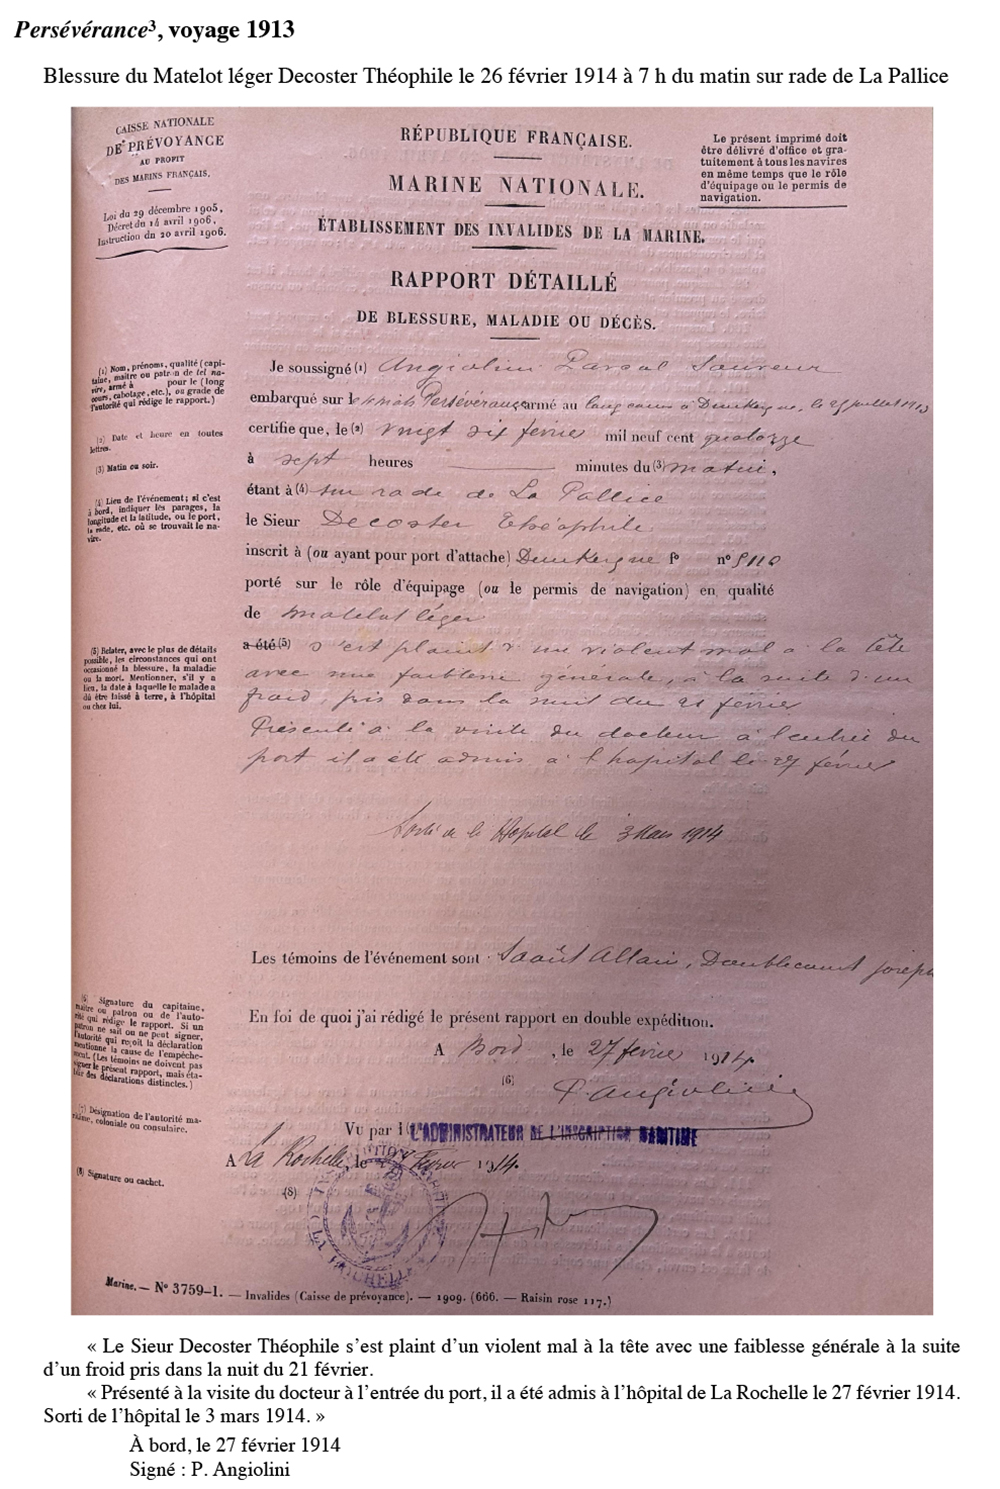 Persévérance³, voyage 1913
Blessure du Matelot léger Decoster Théophile le 26 février 1914 à 7 h du matin sur rade de La Pallice
CAISSE NATIONALE
DE PRÉVOYANCE
AU PROFIT
DES MARINS FRANÇAIS.
Loi du 29 décembre 1905,
Décret du 14 avril 1906,
Instruction du 20 avril 1906.
RÉPUBLIQUE FRANÇAISE.
MARINE NATIONALE.
ÉTABLISSEMENT DES INVALIDES DE LA MARINE.
RAPPORT DÉTAILLÉ
DE BLESSURE, MALADIE OU DÉCÈS.
Le présent imprimé doit
être délivré d'office et gra-
tuitement à tous les navires
en même temps que le rôle
d'équipage ou le permis de
navigation.
(1) Nom, prénoms, qualité (capi-
taine, maître ou patron de tel na-
vire, armé à pour le (long
cours, cabotage, etc.), ou grade de
l'autorité qui rédige le rapport.)
(2) Date et heure en toutes
lettres.
(3) Matin ou soir.
(4) Lieu de l'événement; si c'est
à bord, indiquer les parages, la
longitude et la latitude, ou le port,
la rade, etc. où se trouvait le na-
vire.
(5) Relater, avec le plus de détails
possible, les circonstances qui ont
occasionné la blessure, la maladie
ou la mort. Mentionner, s'il y a
lieu, la date à laquelle le malade a
dû être laissé à terre, à l'hôpital
ou chez lui.
Je soussigné (1) Angiolini Pascal Sauveur
embarqué sur le Persévérance armé au long cours à Dunkerque, le 25 juillet 1913
certifie que, le (2) vingt six février mil neuf cent quatorze
à sept heures minutes du (3) matin,
étant à (4) sur rade de La Pallice
le Sieur Decoster Théophile
inscrit à (ou ayant pour port d'attache) Dunkerque n°
porté sur le rôle d'équipage (ou le permis de navigation) en qualité
de matelot léger
a été (5) s'est plaint d'un violent mal à la tête
avec une faiblesse générale, à la suite d'un
froid, pris dans la nuit du 21 février
Présenté à la visite du docteur à l'entrée du
port il a été admis à l'hôpital le 27 février
Sorti de l'Hôpital le 3 Mars 1914
Les témoins de l'événement sont Allain, Doublecourt Joseph
En foi de quoi j'ai rédigé le présent rapport en double expédition.
A Bord, le 27 février 1914
(6)
P. Angiolini
(6) Signature du capitaine,
maître ou patron ou de l'auto-
rité qui rédige le rapport. Si un
patron ne sait ou ne peut signer,
l'autorité qui reçoit la déclaration
mentionne la cause de l'empêche-
ment. (Les témoins ne doivent pas
signer le présent rapport, mais éta-
blir des déclarations distinctes.)
(7) Désignation de l'autorité ma-
ritime, coloniale ou consulaire.
(8) Signature ou cachet.
Vu par L'ADMINISTRATEUR DE L'INSCRIPTION MARITIME
A La Rochelle, le février 1914.
(8)
LA ROCHELLE
Marine. — N° 3759-1. — Invalides (Caisse de prévoyance). — 1909. (666. — Raisin rose 117.)
« Le Sieur Decoster Théophile s'est plaint d'un violent mal à la tête avec une faiblesse générale à la suite
d'un froid pris dans la nuit du 21 février.
« Présenté à la visite du docteur à l'entrée du port, il a été admis à l'hôpital de La Rochelle le 27 février 1914.
Sorti de l'hôpital le 3 mars 1914. »
À bord, le 27 février 1914
Signé : P. Angiolini